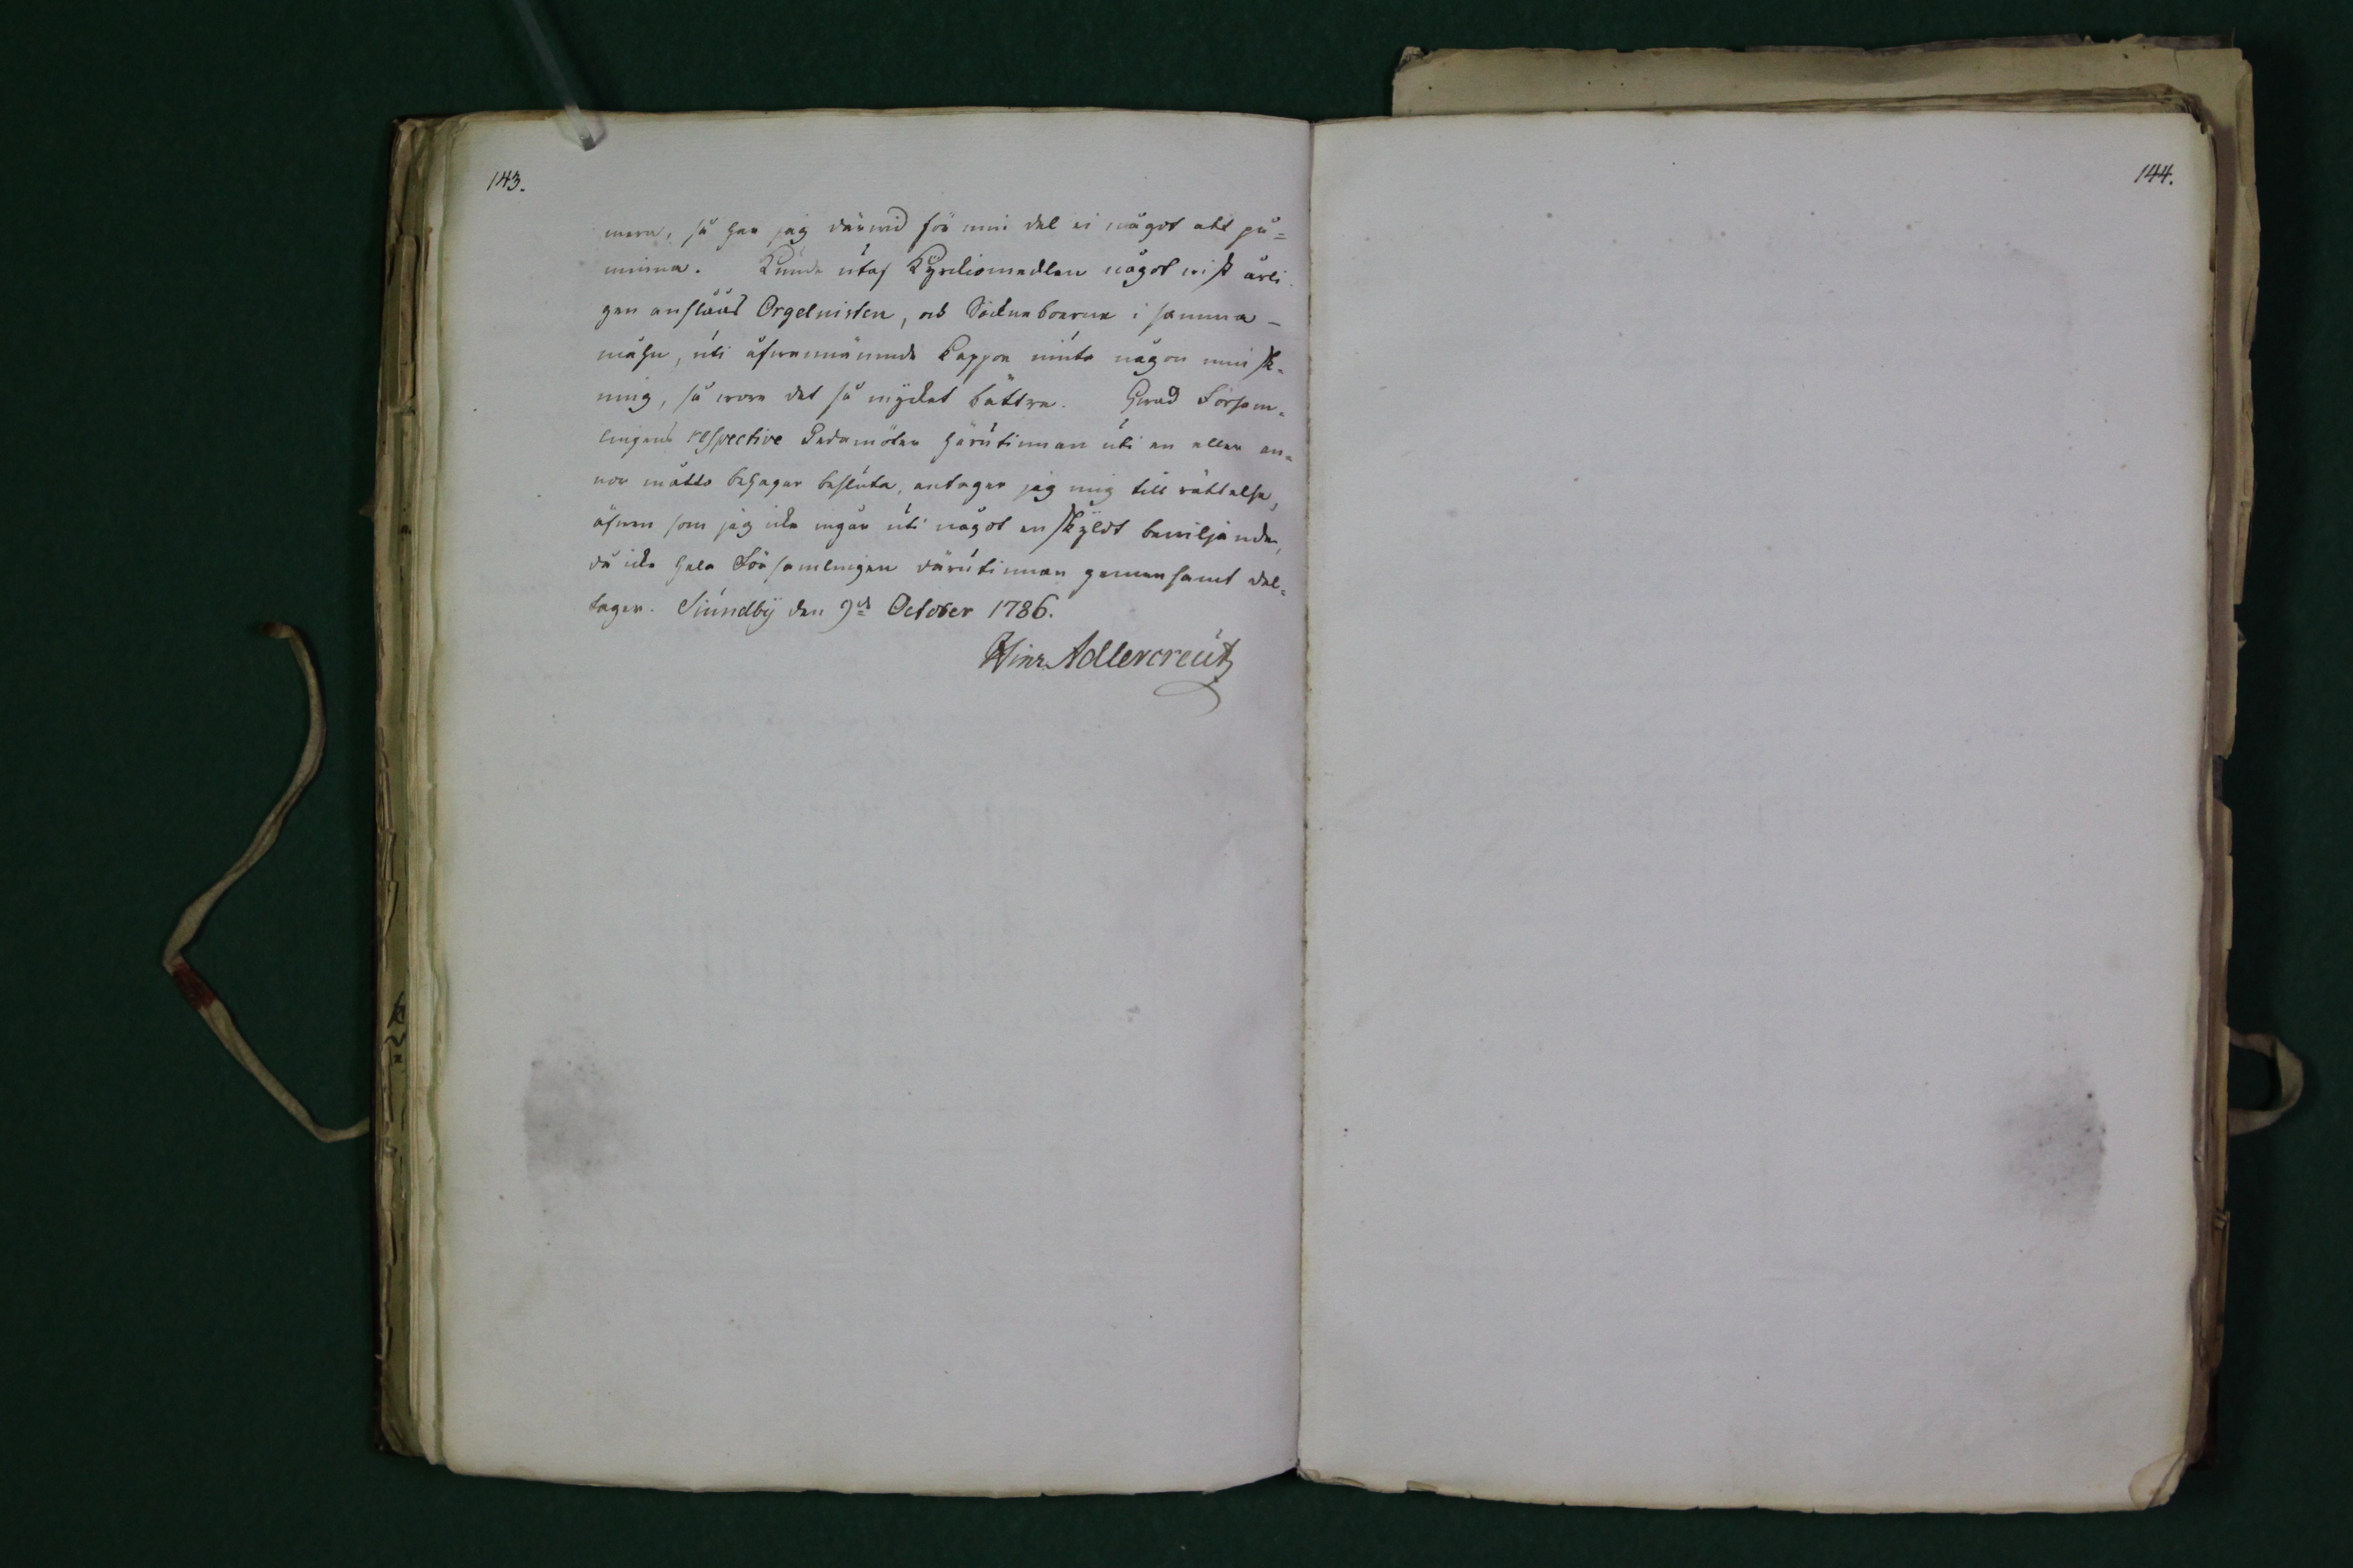 143.
144.
mera, så har jag därwid för min del ei något att på=
minna. Kunde utaf Kyrkiomedlen något wißt årli-
gen anslåås Orgelnisten, och Sockneboerne i samma-
måhn, uti åfwannämnde Kappor niuta någon minsk-
ning, så wore det så mycket bättre. Hwad Försam-
lingens respective Ledamöter härutinnan uti en eller an-
nor måtto behagar besluta, antager jag mig till rättelse,
äfwen som jag icke ingår uti något enskyldt bewiljande,
då icke hela Församlingen därutinnan gemensamt del-
tager. Siundby den 9de October 1786.
Hinr. Adlercreutz